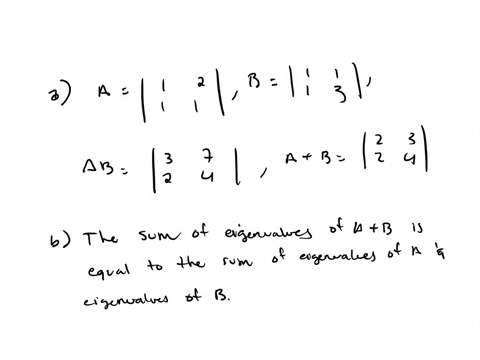 a) A = | 1 2 | , B = | 1 1 | ,
| 1 1 | | 1 3 |
AB = | 3 7 | , A + B = | 2 3 |
| 2 4 | | 2 4 |
b) The sum of eigenvalves of A + B is
equal to the sum of eigenvalues of A &
eigenvalues of B.